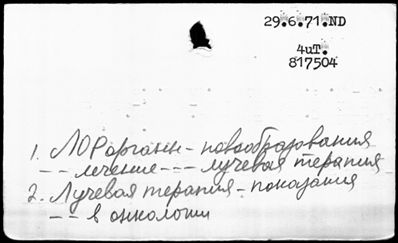 29.6.71.ND
4иТ.
817504
1. ЛОРорганы - новообразования
-- лечение --- лучевая терапия
2. Лучевая терапия - показания
-- в онкологии